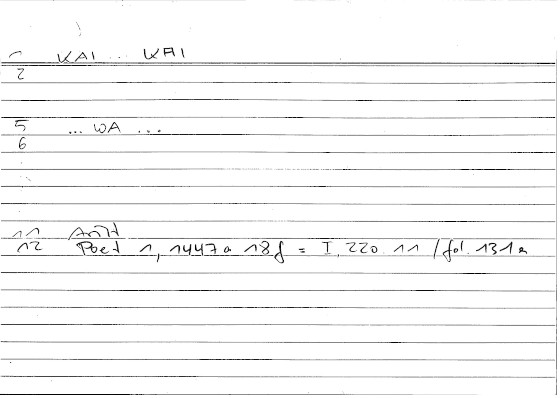 1 KAI ... KAI
2
5 ... WA ...
6
11 Arist
12 Poet 1, 1447a 18f = I, 220. 11 / fol. 131a